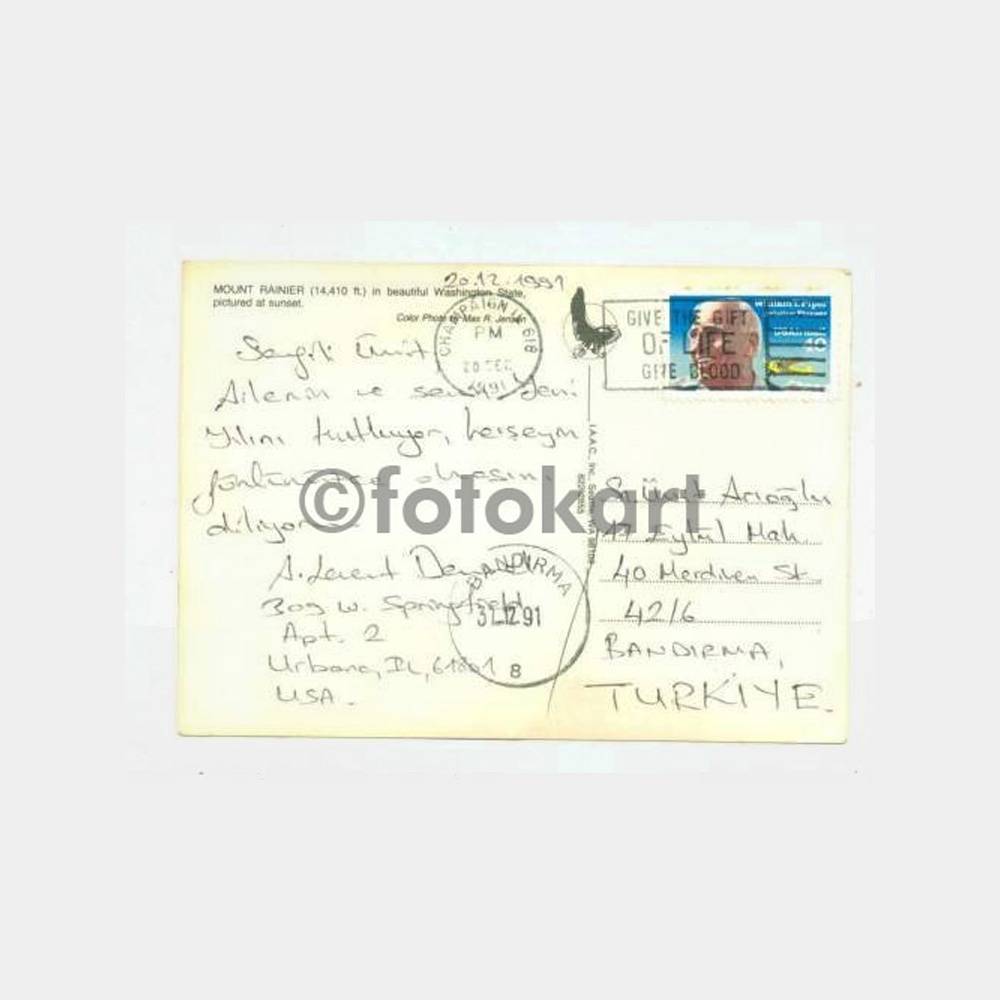 20.12.1991
MOUNT RAINIER (14,410 ft.) in beautiful Washington State,
pictured at sunset.
Color Photo by Max R. Jensen
CHAMPAIGN IL 618
PM
20 DEC
1991
GIVE THE GIFT
OF LIFE
GIVE BLOOD
William T. Piper
Aviation Pioneer
USAirmail
40
Sevgili Ümit
Ailenin ve senin Yeni
Yılını kutluyor, herşeyin
olmasını
diliyor
©fotokart
A. Levent
309 W. Springfield
Apt. 2
Urbana, IL, 61801
USA.
BANDIRMA
31.12.91
8
I.A.A.C., Inc. Seattle, WA 98108
Arıoğlu
17 Eylül Mah.
40 Merdiven St.
42/6
BANDIRMA,
TURKİYE.